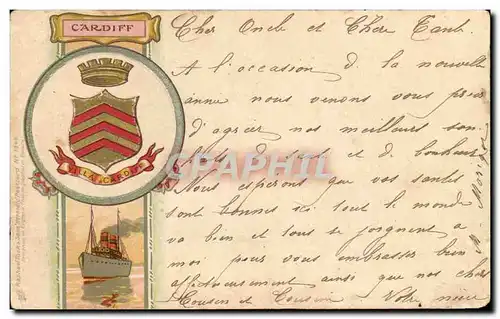 CARDIFF
VILLA CARDIFF
Cher Oncle et Chère Tante
A l'occasion de la nouvelle
année nous venons vous prier
d'agréer nos meilleurs sou-
haits de santé et de bonheur
Nous espérons que vos santés
sont bonnes ici tout le monde
va bien et tous se joignent a
moi pour vous embrasser bien
affectueusement ainsi que nos chers
Cousin et Cousine Votre nièce